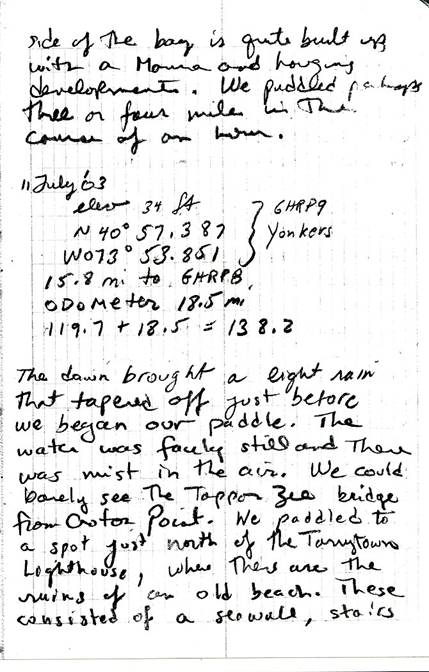 side of the bay is quite built up
with a Marina and housing
developments. We paddled perhaps
three or four miles in the
course of an hour.
11 July '03
elev 34 ft
N 40° 57.387
W073° 53.851
GHRP9
Yonkers
15.8 mi to GHRPB,
ODOMeter 18.5 mi
119.7 + 18.5 = 138.2
The dawn brought a light rain
that tapered off just before
we began our paddle. The
water was fairly still and There
was mist in the air. We could
barely see The Tappan Zee bridge
from Croton Point. We paddled to
a spot just north of the Tarrytown
Lighthouse, where There are the
ruins of an old beach. These
consisted of a seawall, stairs